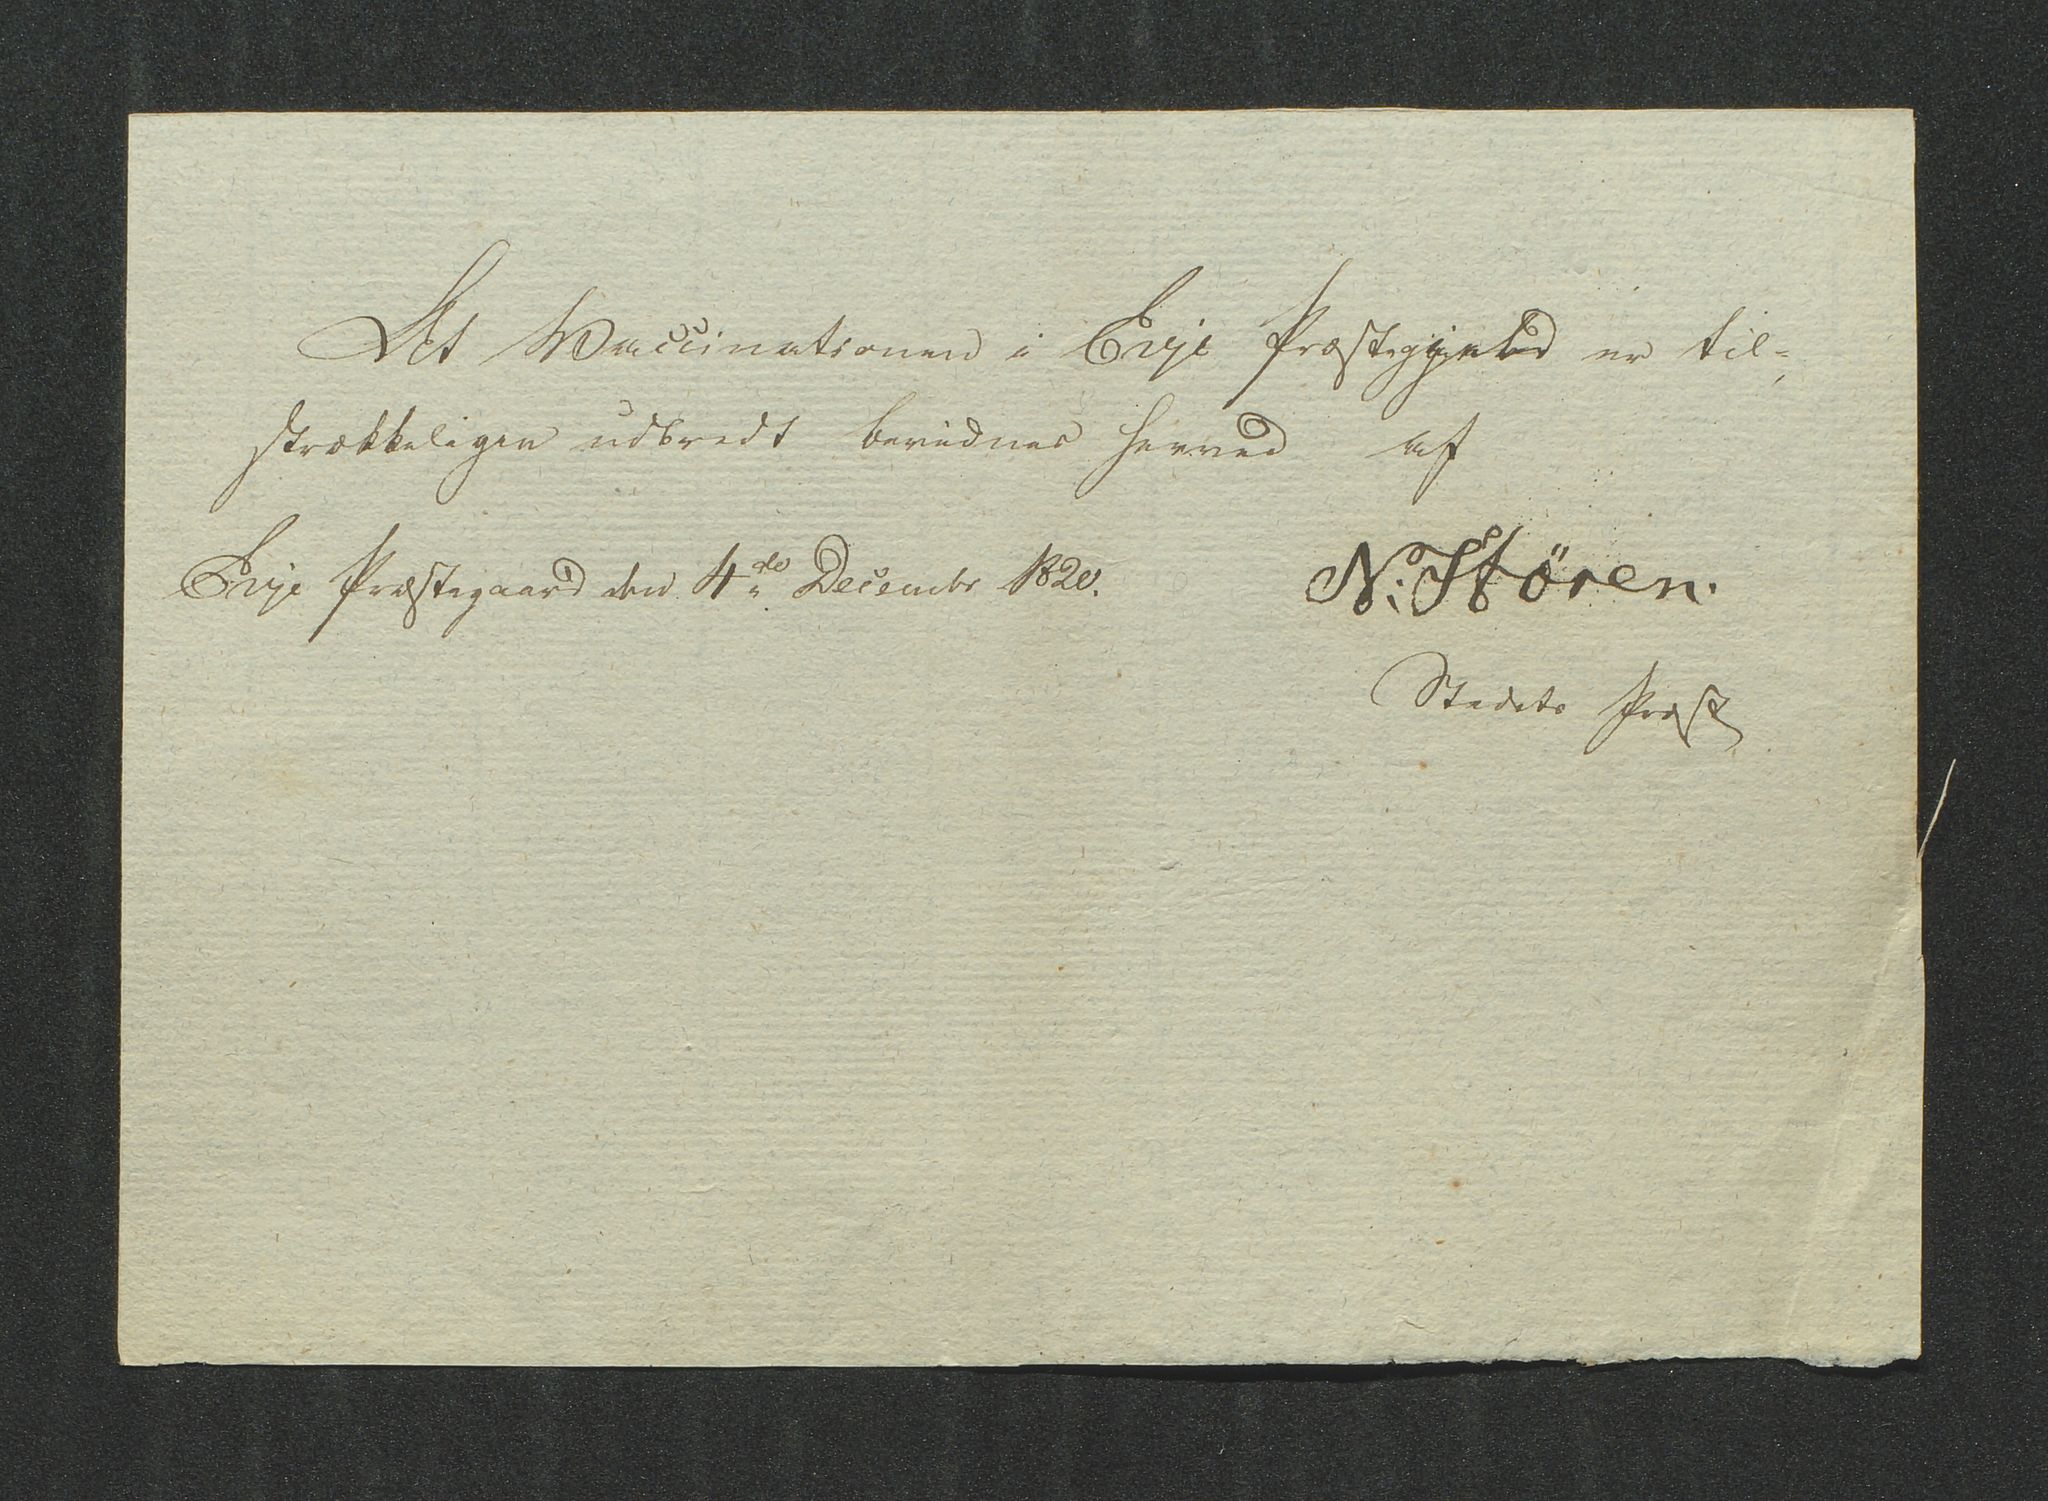 At Vaccinationen i Evje Præstegjeld er til-
strækkeligen udbredt bevidnes herved af
Evje Præstegaard den 4de Decembr 1820.
N. Stören.
Stedets Præst